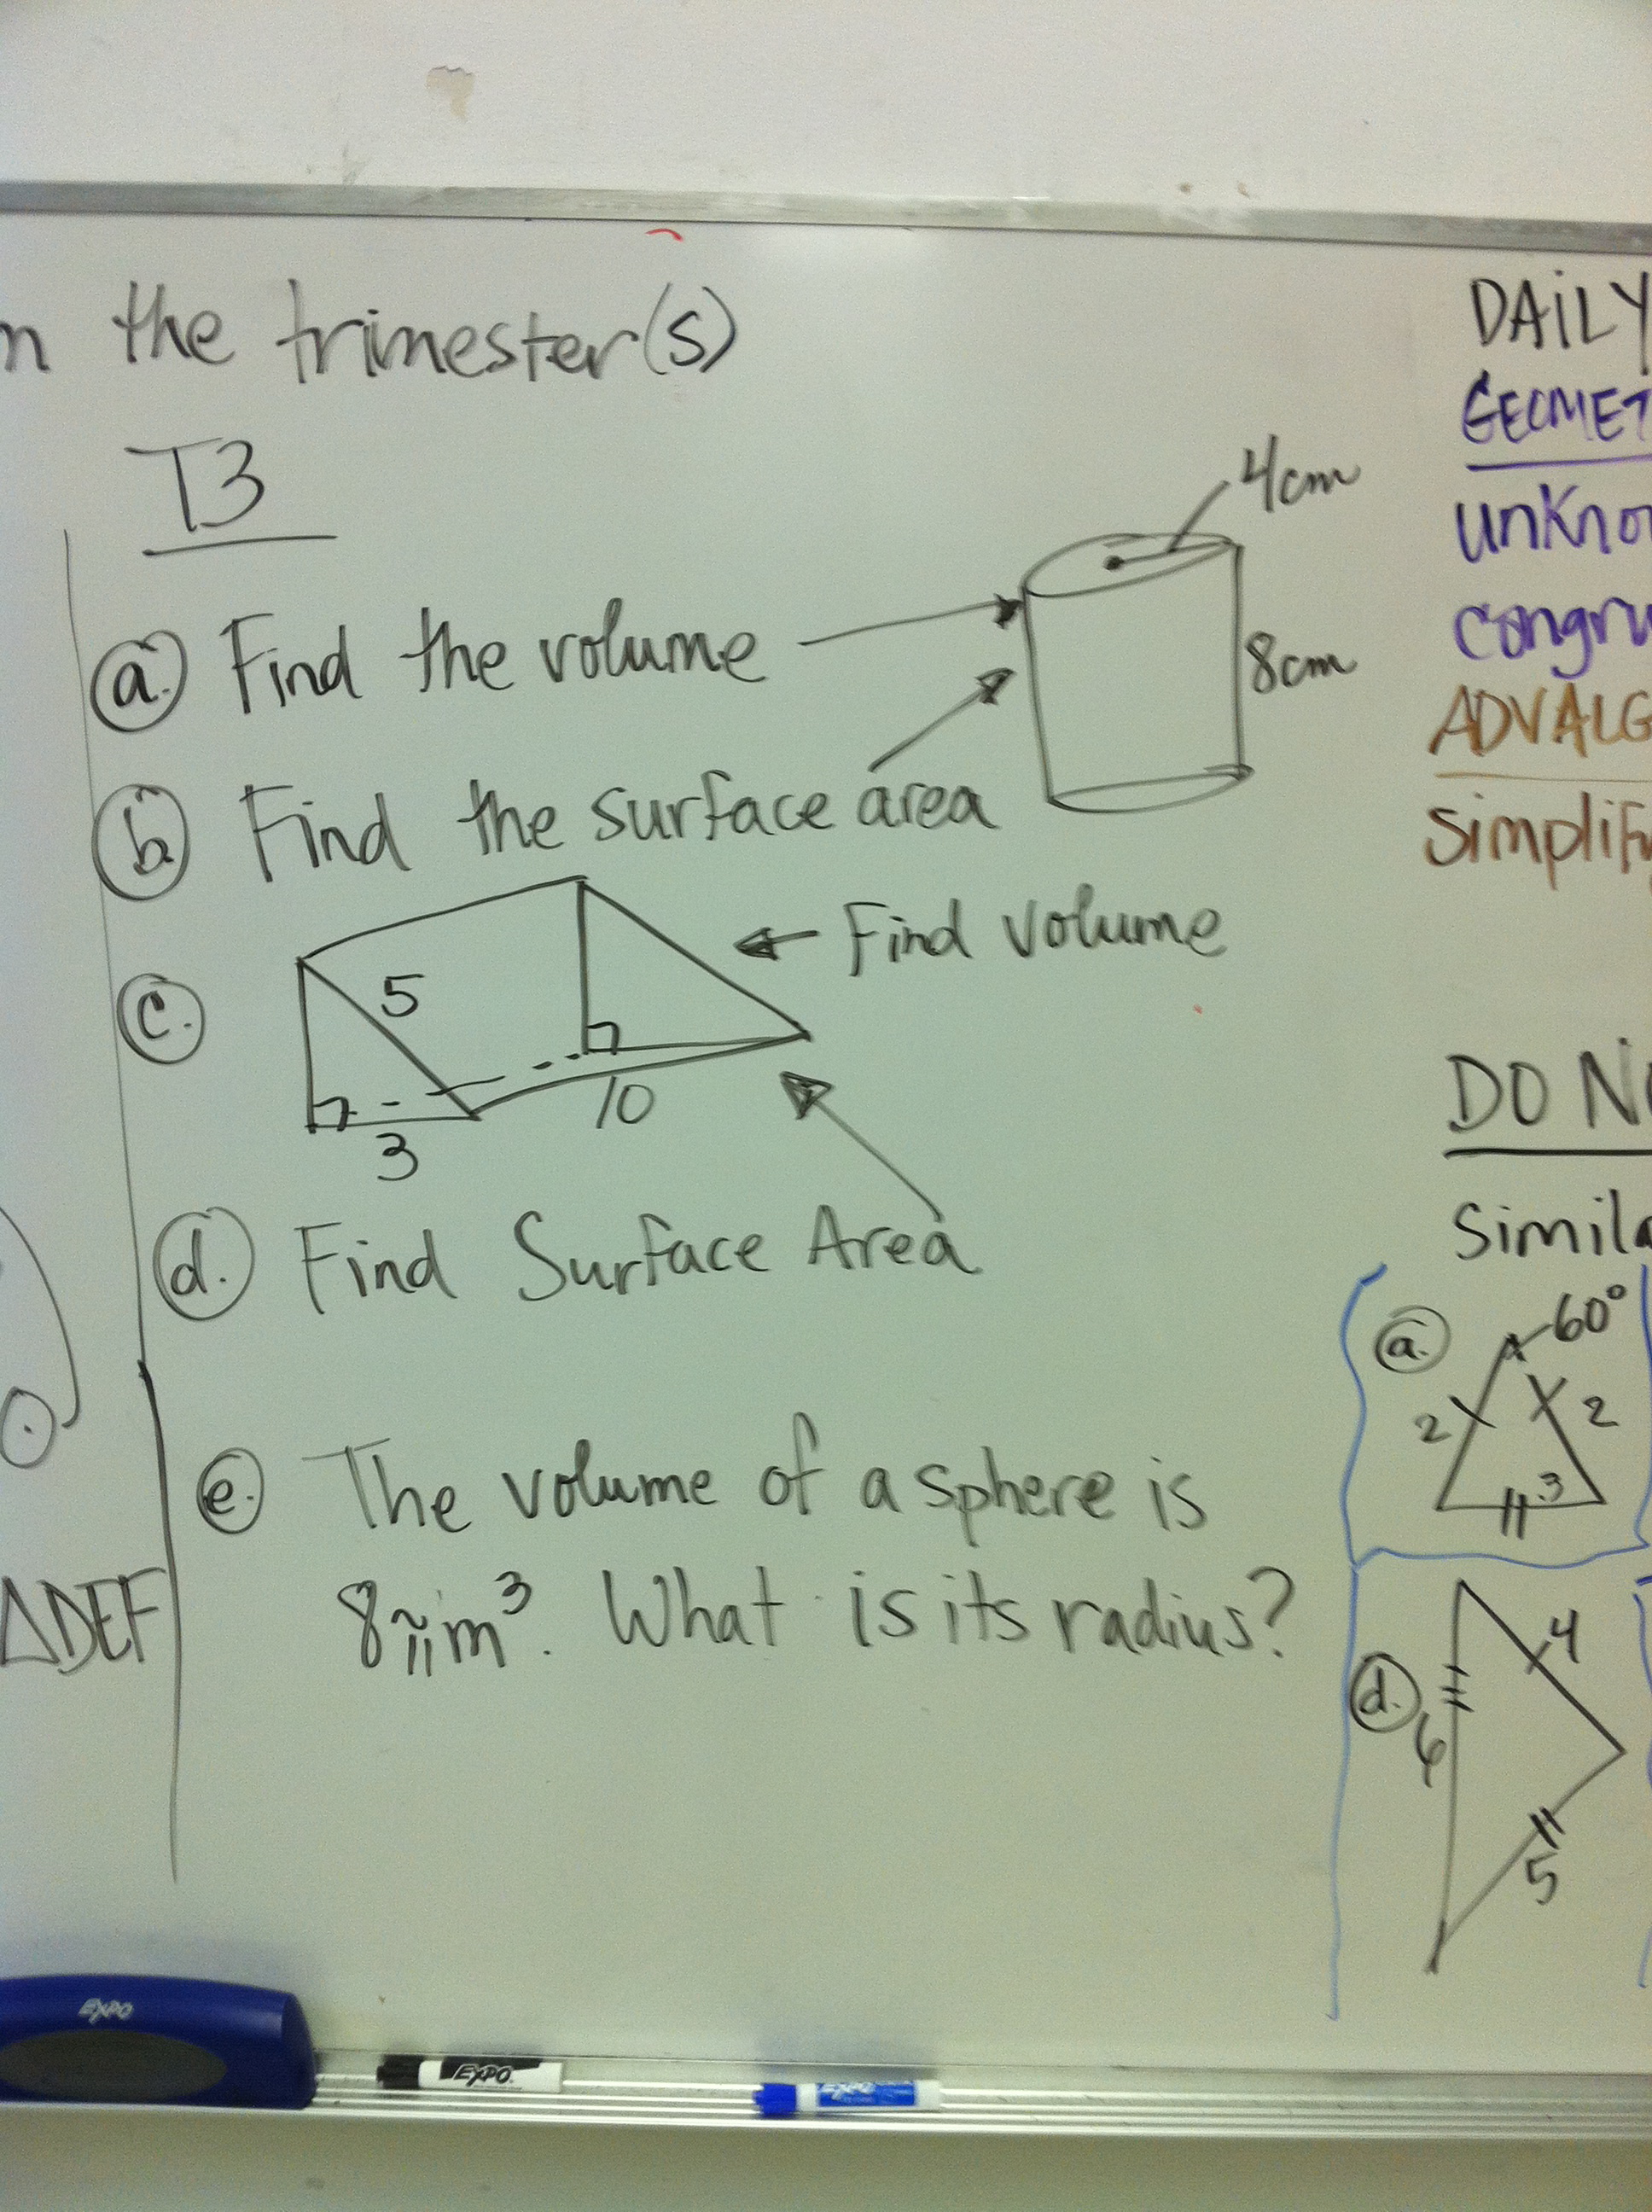 n the trimester(s)
T3
a. Find the volume
4cm
8cm
b. Find the surface area
c.
5
3
10
Find volume
d. Find Surface Area
e. The volume of a sphere is
8π m³. What is its radius?
ΔDEF
DAILY
GEOMET
unkno
congru
ADV ALG
simplify
DO N
simila
a.
60°
2
2
3
d.
4
6
5
EXPO
EXPO
EXPO